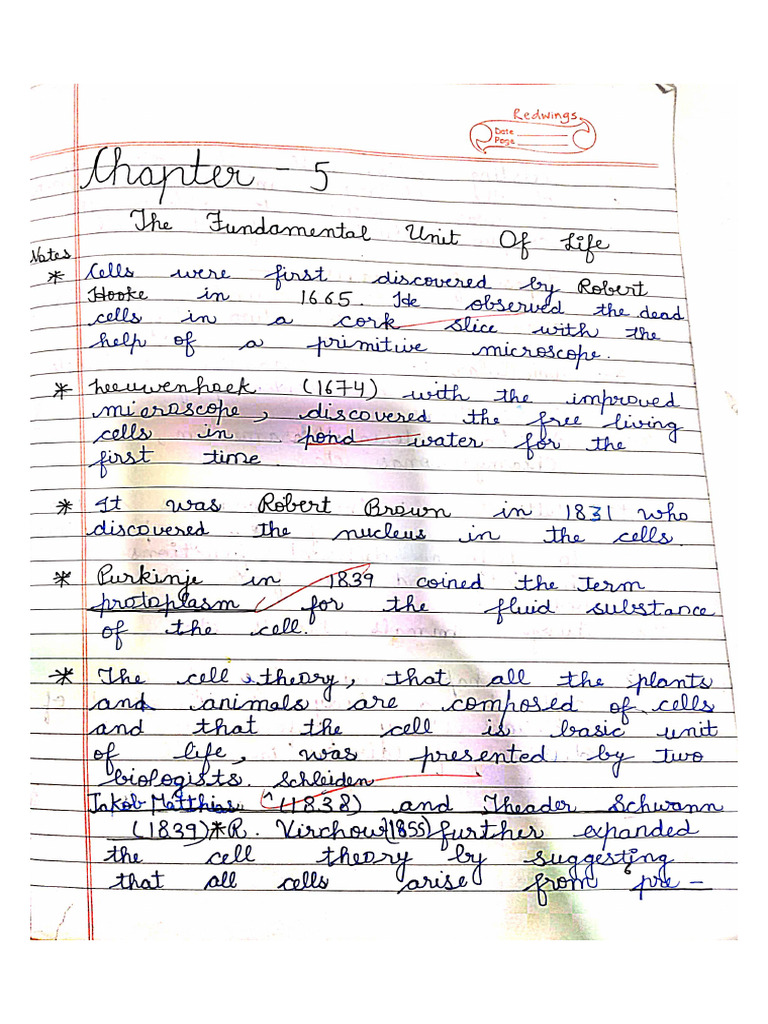 Redwings
Date
Page
Chapter - 5
The Fundamental Unit Of Life
Notes
* Cells were first discovered by Robert
Hooke in 1665. He observed the dead
cells in a cork slice with the
help of a primitive microscope.
* Leeuwenhoek (1674) with the improved
microscope, discovered the free living
cells in pond water for the
first time.
* It was Robert Brown in 1831 who
discovered the nucleus in the cells.
* Purkinje in 1839 coined the term
protoplasm for the fluid substance
of the cell.
* The cell theory, that all the plants
and animals are composed of cells
and that the cell is basic unit
of life, was presented by two
biologists. Schleiden
Jakob Matthias (1838) and Theader Schwann
(1839)* R. Virchow (1855) further expanded
the cell theory by suggesting
that all cells arise from pre-